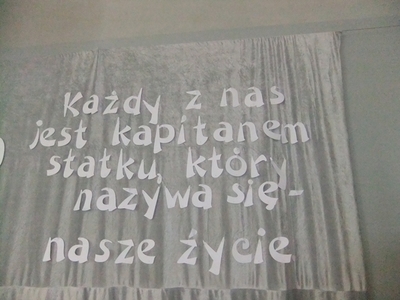 Każdy z nas
jest kapitanem
statku, który
nazywa się -
nasze życie